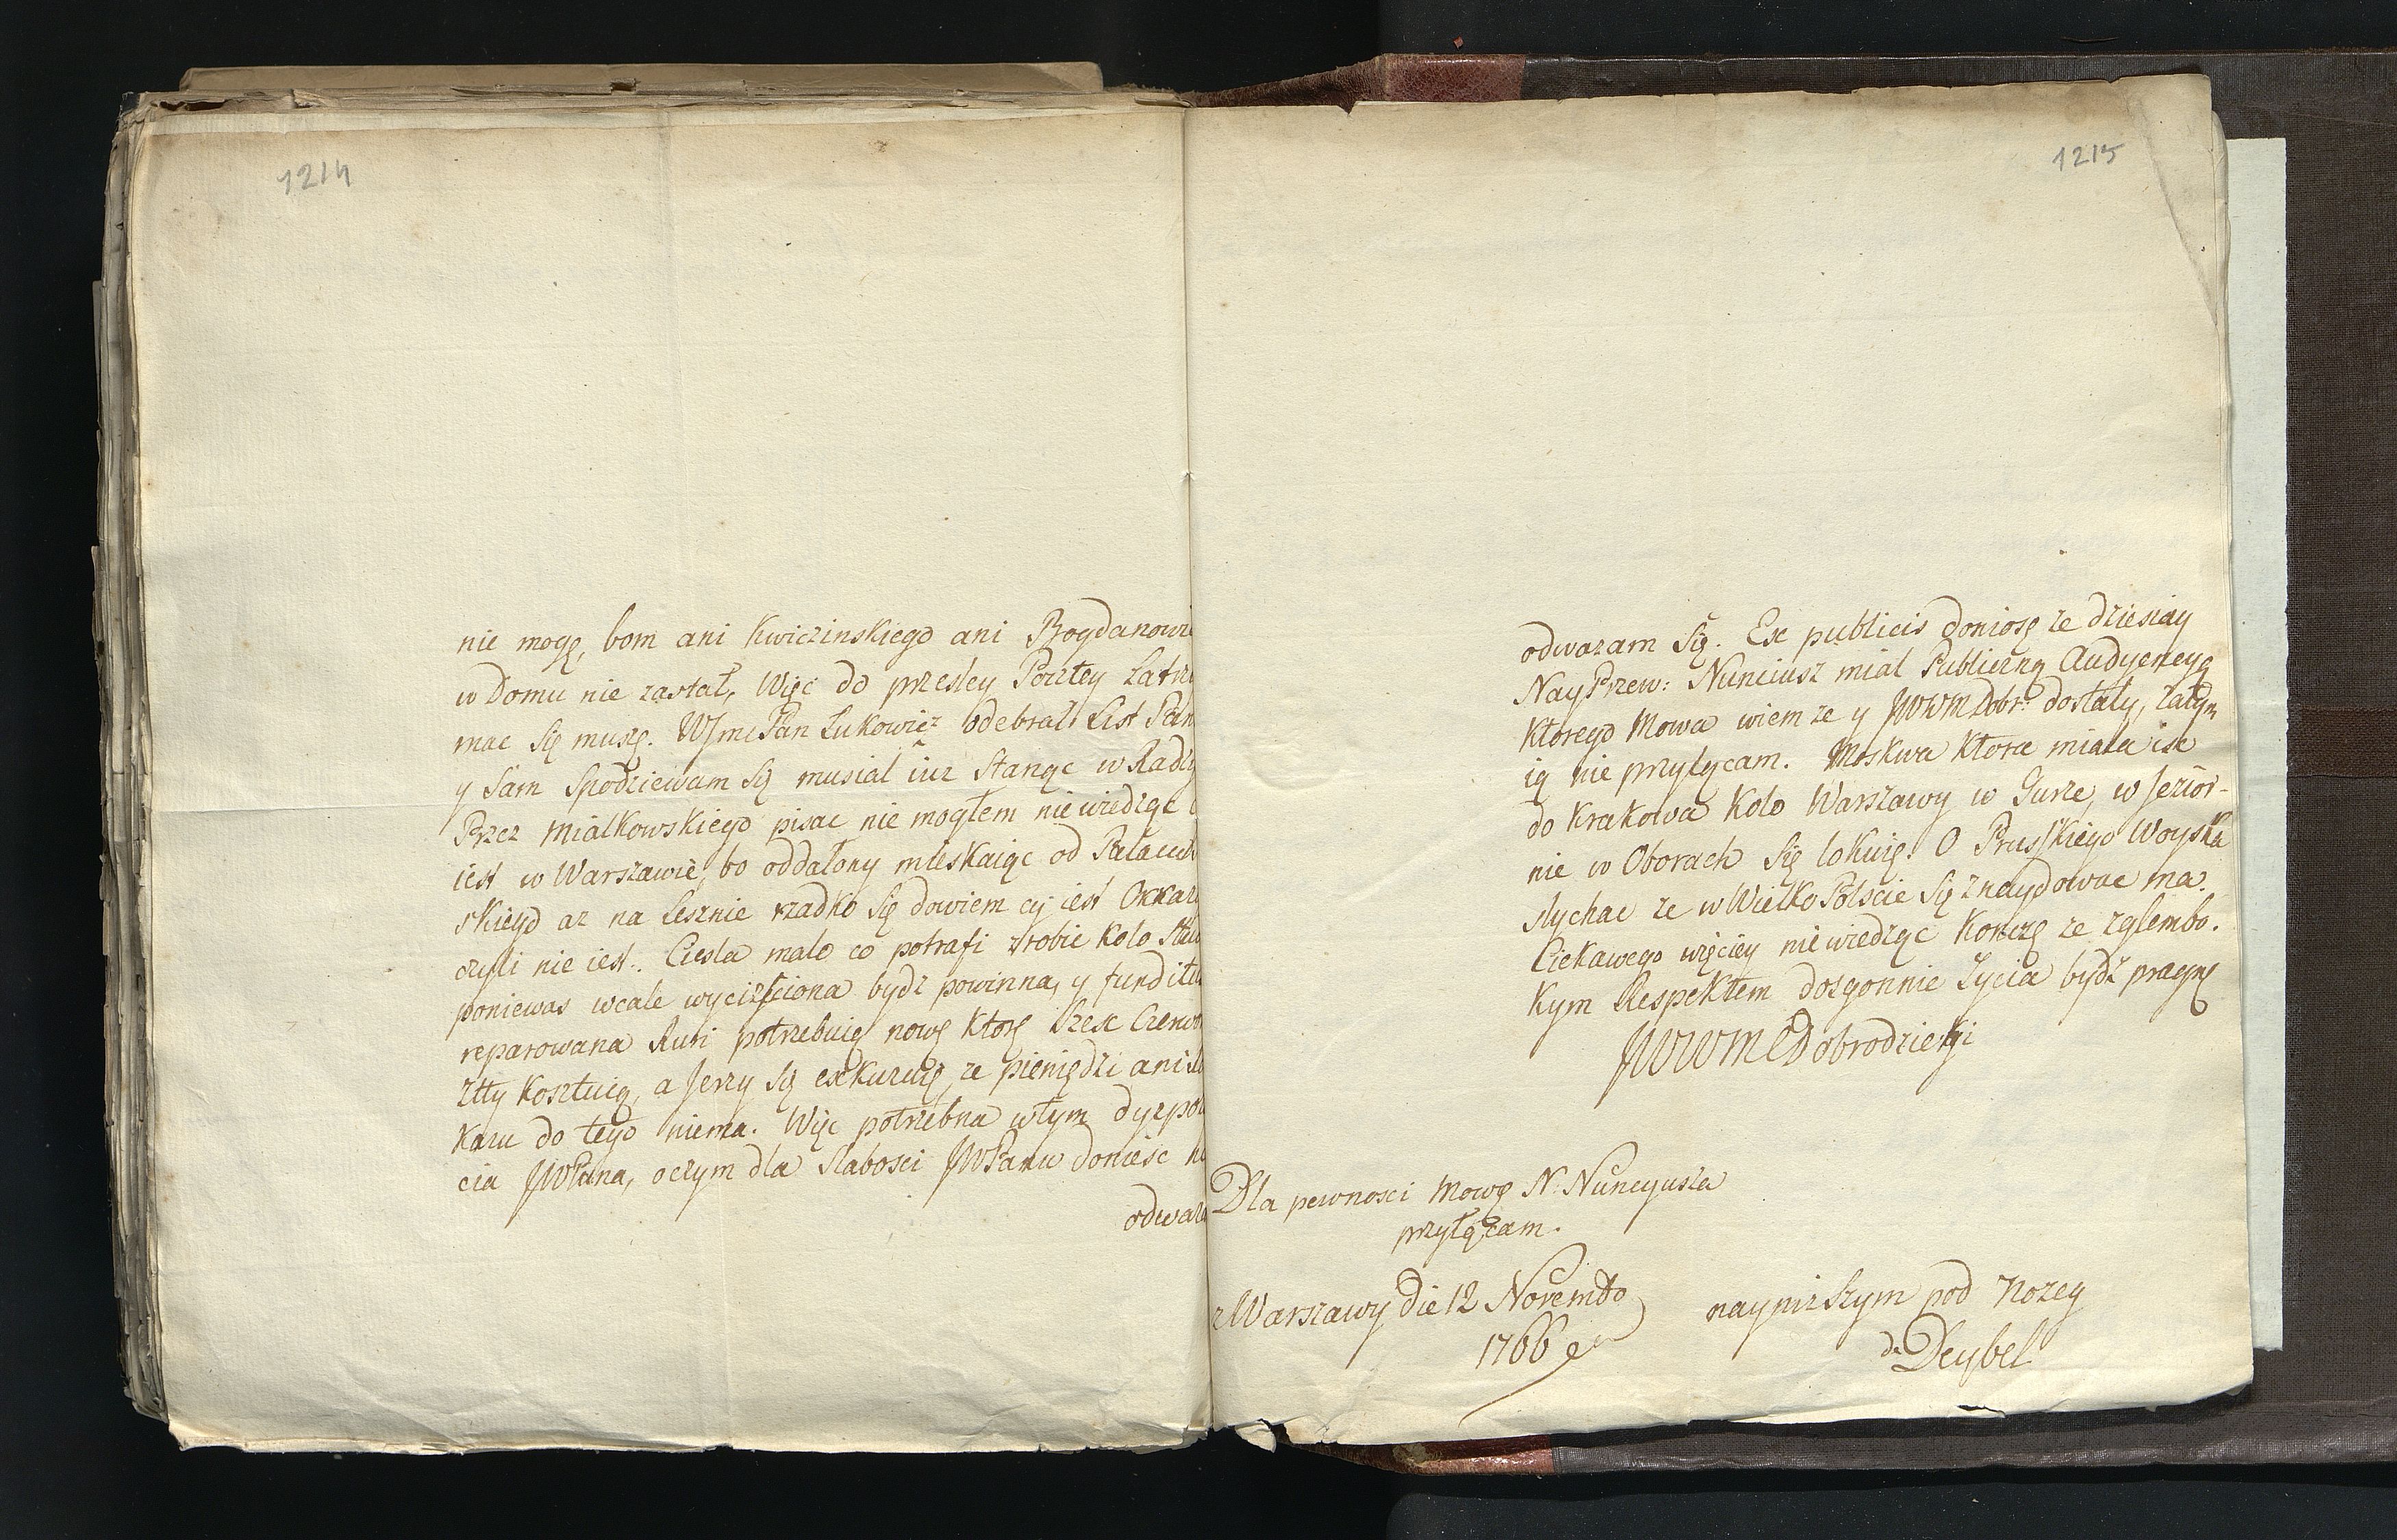 1214
nie mogę, bom ani Kwiczinskiego ani Bogdanowi
w Domu nie zastał, Więc do przesley Poczty Zatrzy
mac się muszę. WJmc Pan Lukowicz odebral List Pan
y Sam Spodziewam Się musiał iuz Stanąc w Radzy
Przez Miałkowskiego pisac nie mogłem niewiedząc
iest w Warszawie, bo oddalony mieskaiąc od Pałacu
skiego az na Lesznie rzadko Się dowiem czy iest Okkaz
czyli nie iest. Ciesla malo co potrafi zrobic Kolo Stu
poniewas wcale wyciżsciona bydz powinna, y funditu
reparowana Ruri potrzebuię nowę Ktorę Szesc Czerwo
Złty Kosztuią, a Jerzy Się exkuzuię, ze pieniędzi ani
Karu do tego niema. Więc potrzebna wtym dyzpo
cia JWPana, oczym dla Slabosci JWPanu doniesc
odwaza
1215
odwazam Się. Ex publicis doniosę ze dziesiay
NayPrzew: Nunciusz mial Publiczną Audyencyą
Ktorego Mowa wiem ze y JWWMDobr: dostaly, zatym
ią nie przyłęcam. Moskwa Ktora miała isc
do Krakowa Kolo Warszawy w Gurze, w Jezior-
nie w Oborach Się lokuię. O Pruskiego Woyska
slychac ze w Wielko Polscie Się znaydowac ma.
Ciekawego więcey niewiedząc Konczę ze zglembo.
Kym Respektem dozgonnie Zycia bydz pragnę
JWWM Dobrodzieki
Dla pewnosci Mowę N. Nuncyusza
przyłączam.
z Warszawy Die 12 Novembo
1766
naynizszym pod Nozey
de Deybel